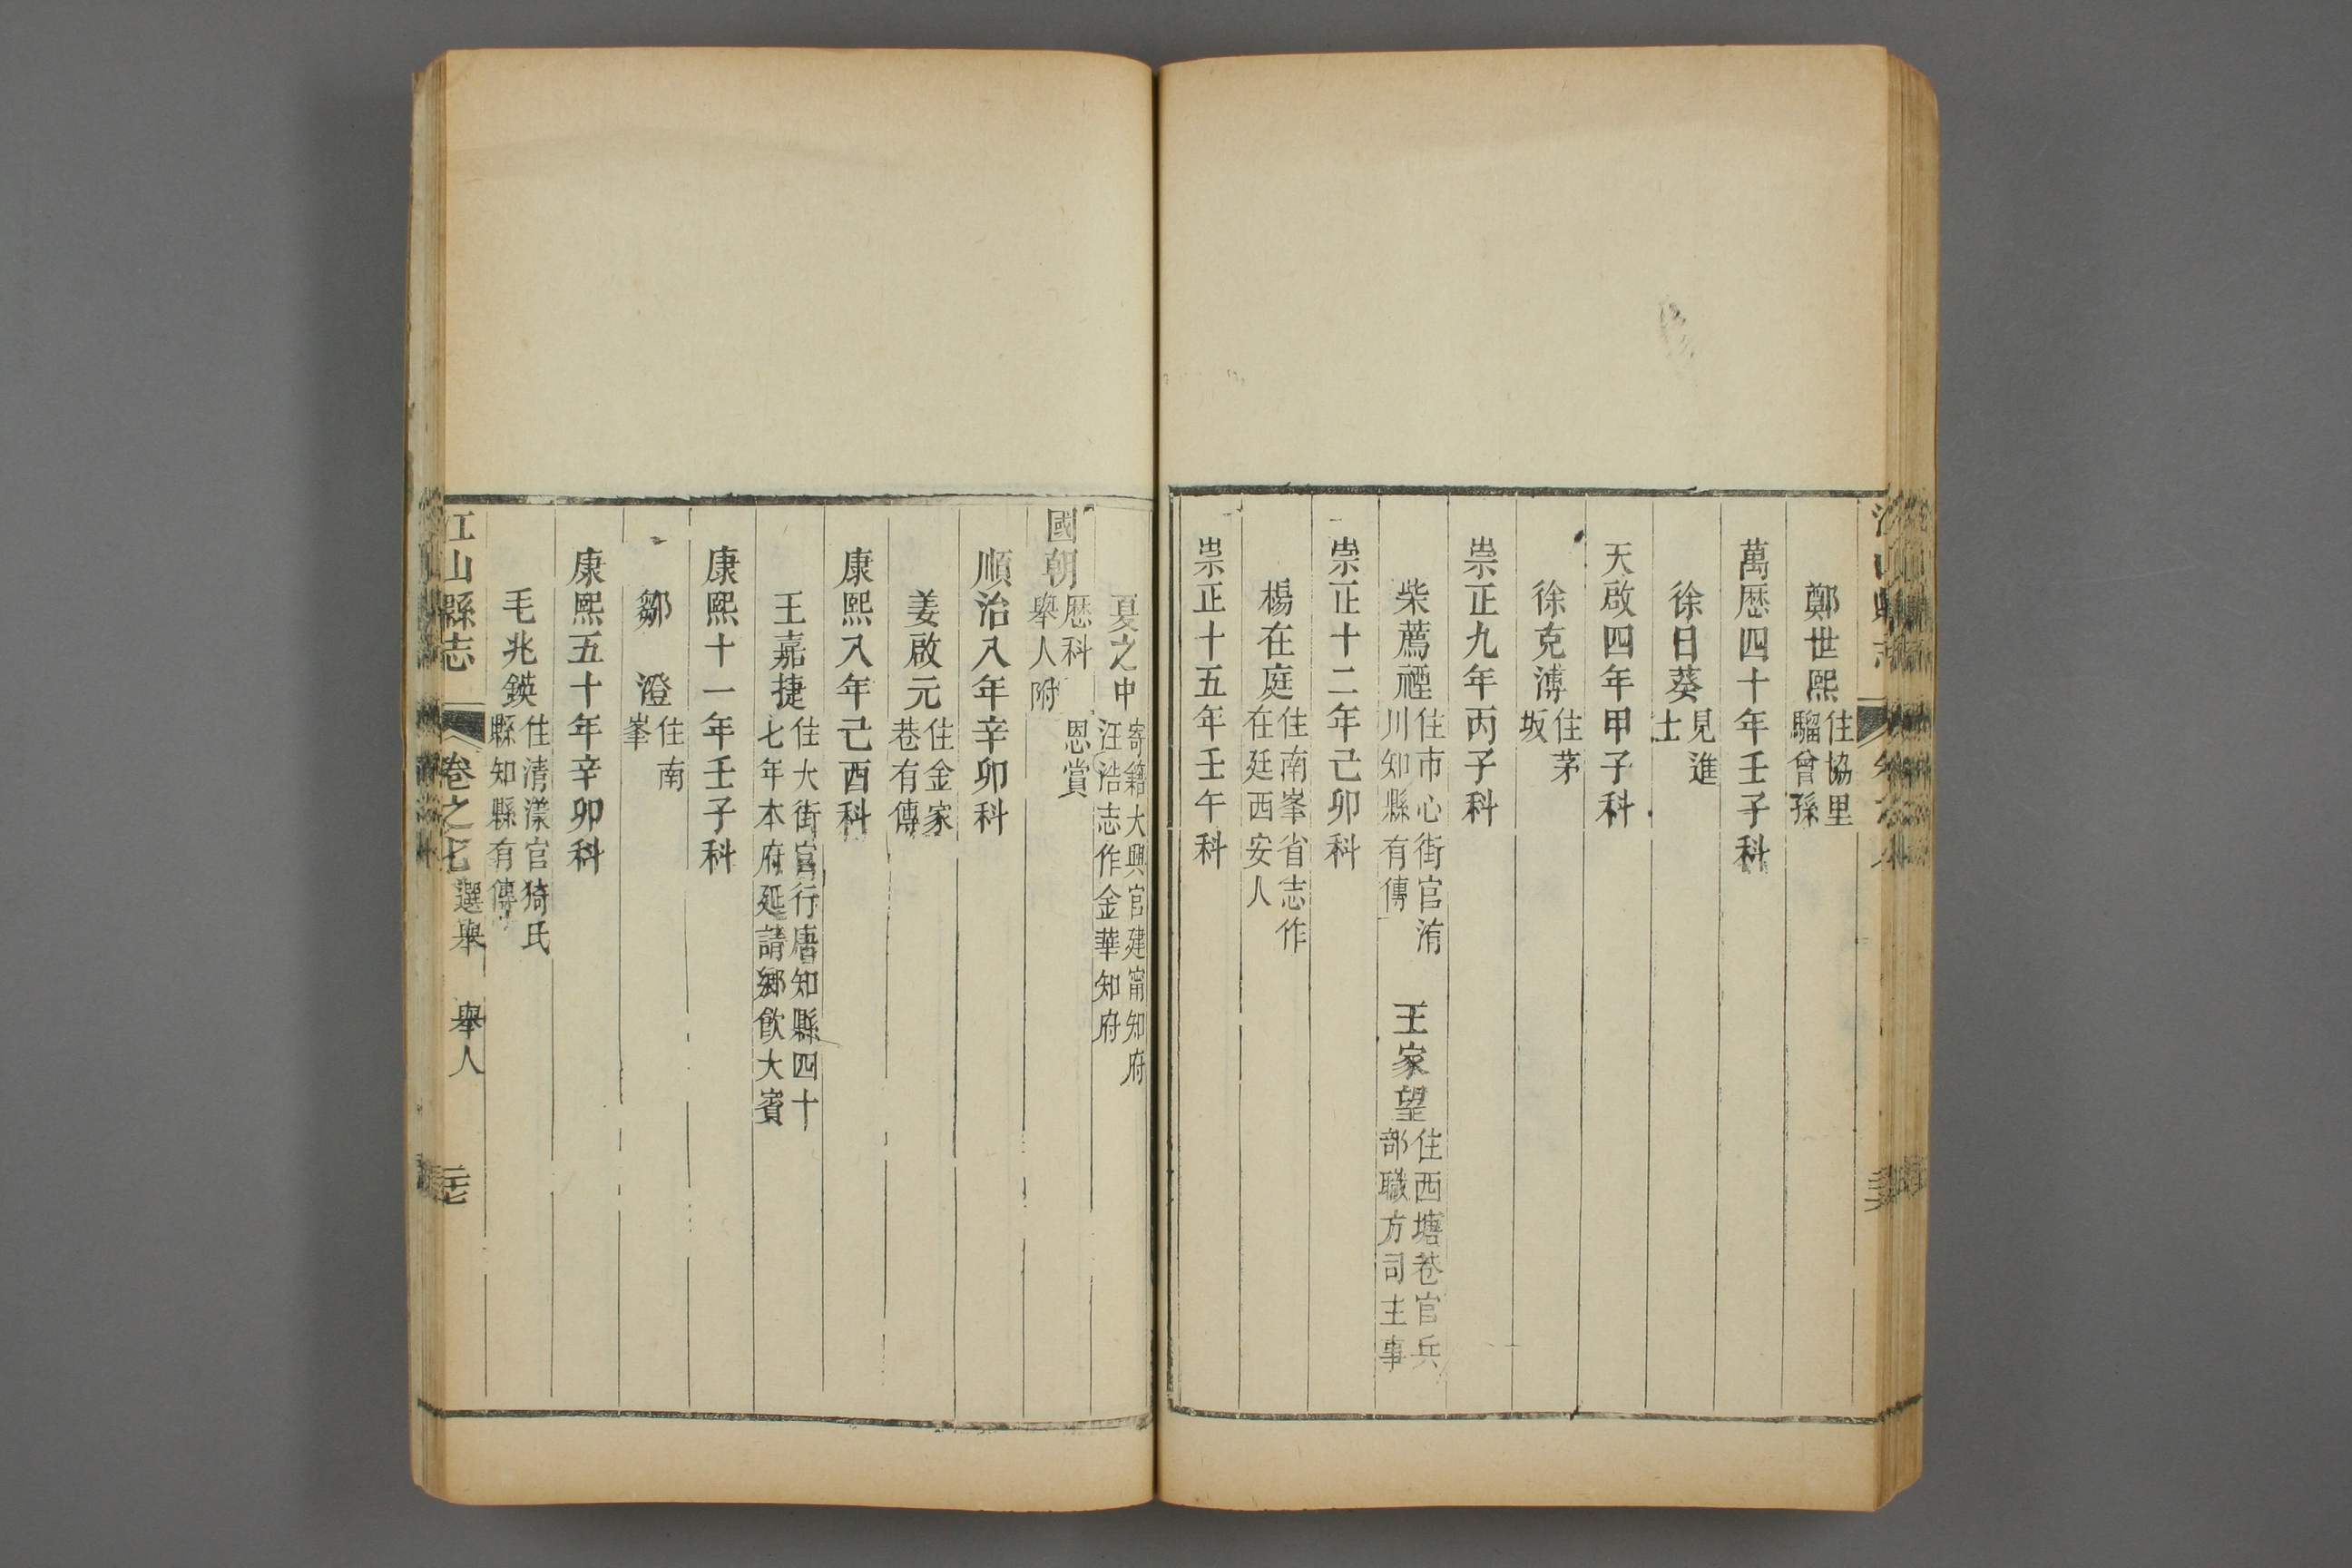 鄭世熙住協里騮曾孫
萬厯四十年壬子科
徐日葵見進士
天啟四年甲子科
徐克溥住茅坂
崇正九年丙子科
柴薦禋住市心街官洧川知縣有傳 王家望住西塘巷官兵部職方司主事
崇正十二年己卯科
楊在庭住南峯省志作在廷西安人
崇正十五年壬午科
夏之中寄籍大興官建甯知府汪浩志作金華知府
國朝厯科舉人附 恩賞
順治八年辛卯科
姜啟元住金家巷有傳
康熙八年己酉科
王嘉捷住大街官行唐知縣四十七年本府延請鄉飲大賓
康熙十一年壬子科
鄒 澄住南峯
康熙五十年辛卯科
毛兆鍈住清漾官猗氏縣知縣有傳
江山縣志 卷之七 選舉 舉人